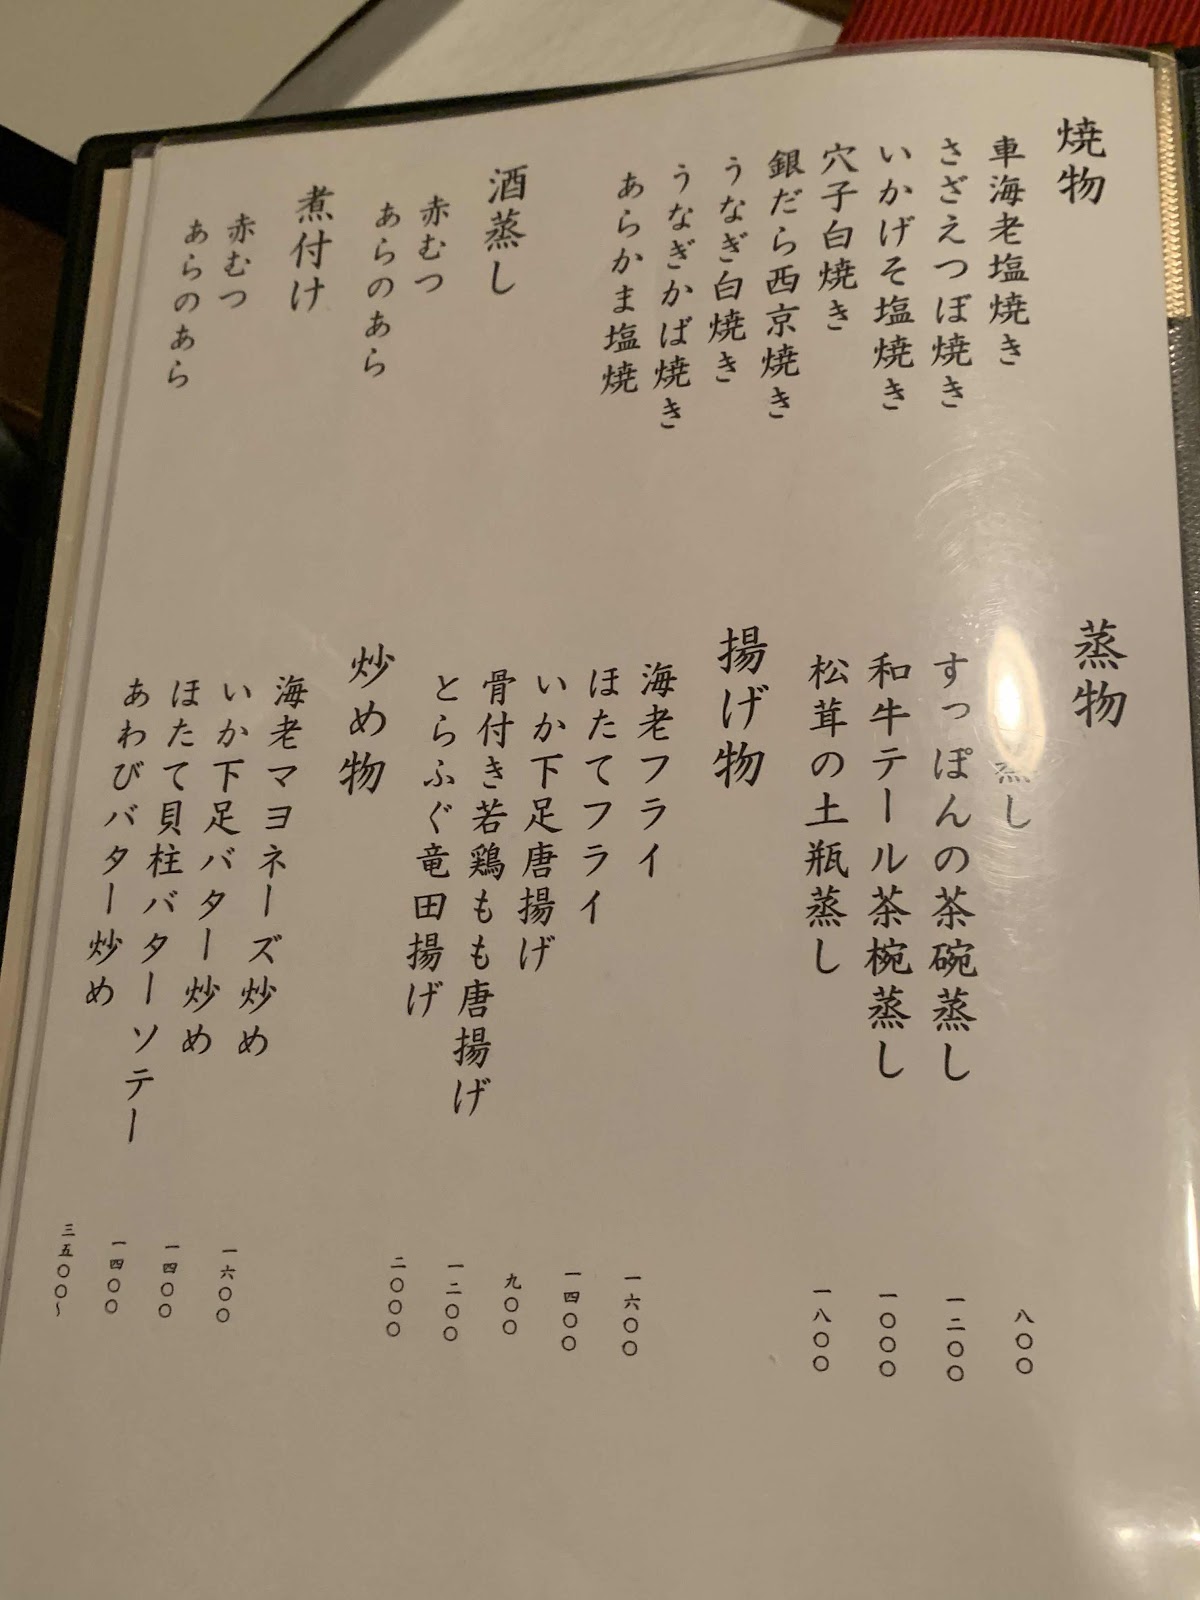 焼物
車海老塩焼き
さざえつぼ焼き
いかげそ塩焼き
穴子白焼き
銀だら西京焼き
うなぎ白焼き
うなぎかば焼き
あらかま塩焼
酒蒸し
赤むつ
あらのあら
煮付け
赤むつ
あらのあら
蒸物
蒸し 八〇〇
すっぽんの茶碗蒸し 一二〇〇
和牛テール茶椀蒸し 一〇〇〇
松茸の土瓶蒸し 一八〇〇
揚げ物
海老フライ 一六〇〇
ほたてフライ 一四〇〇
いか下足唐揚げ 九〇〇
骨付き若鶏もも唐揚げ 一二〇〇
とらふぐ竜田揚げ 二〇〇〇
炒め物
海老マヨネーズ炒め 一六〇〇
いか下足バター炒め 一四〇〇
ほたて貝柱バターソテー 一四〇〇
あわびバター炒め 三五〇〇~